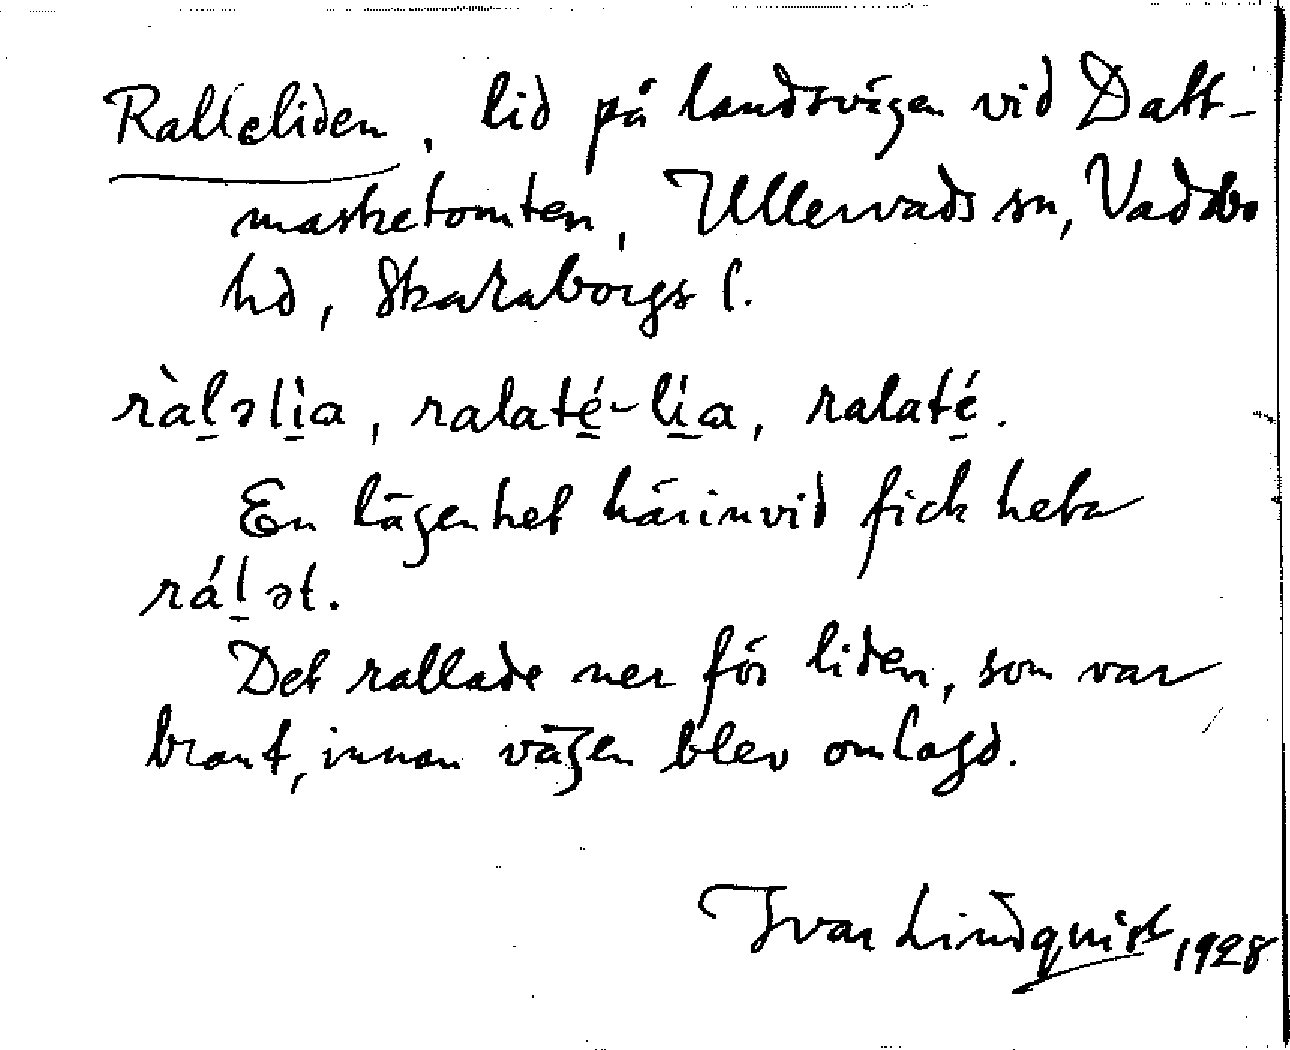 Ralleliden, lid på landsvägen vid Datt-
masketomten, Ullervads sn, Vadsbo
hd, Skaraborgs l.
ràl̠əli̠a, ralaté̠-lí̠a, ralaté̠.
En lägenhet härinvid fick heta
rál̠ət.
Det rallade ner för liden, som var
brant, innan vägen blev omlagd.
Ivar Lindquist 1928